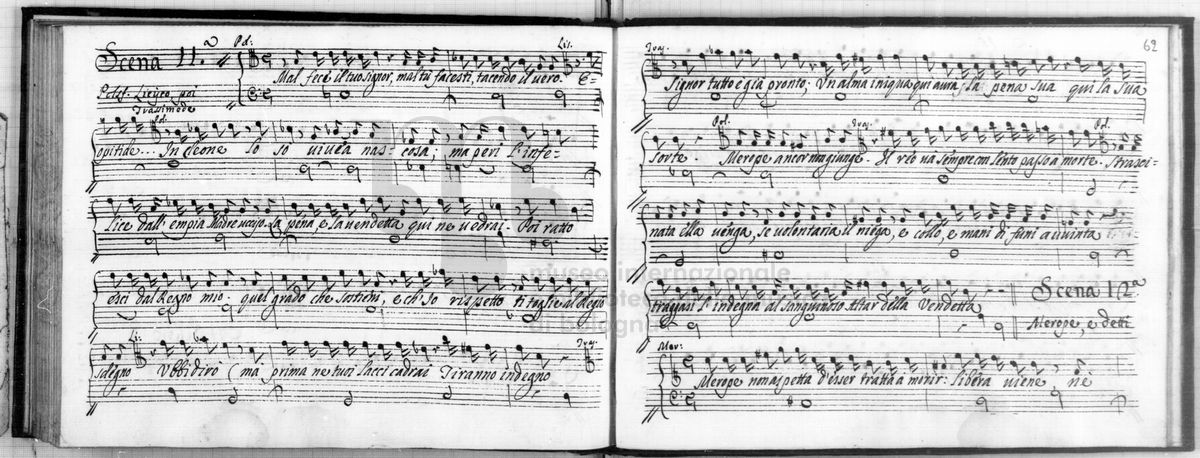 Scena 11.a Pol: Lis:
Mal fece il tuo signor, mal tu facesti, tacendo il vero. E-
Polif. Licisco poi
Trasimede
Pol.
opitide... In Cleone Io so vivea nas- cosa; ma peri L'infe-
lice dall' empia Madre ucciso. La pena, e la vendetta qui ne vedrai. Poi ratto
esci dal Regno mio: quel grado che sostieni, e ch'io rispetto ti toglie al Regio
Li: Tras.
sdegno Ubbidirò (ma prima ne tuoi lacci cadrai Tiranno indegno
Tras. 62
Signor tutto è già pronto; Un alma iniqua qui avrà la pena sua qui la sua
Pol. Tras. Pol.
sorte. Merope ancor non giunge. Il reo va sempre con lento passo a morte. Strasci-
nata ella venga, se volontaria il niega, e collo, e mani di funi avvinta
traggasi l'indegna al sanguinoso Altar della Vendetta Scena 12a
Merope, e detti
Mer:
Merope non aspetta d'esser tratta a morir: libera viene, nè
museo internazionale
di bologna